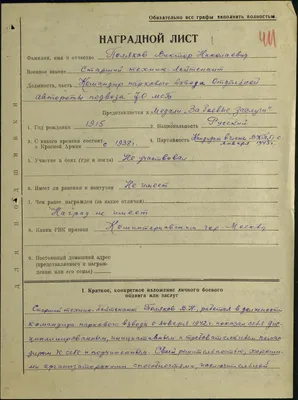 Обязательно все графы заполнить полностью.
НАГРАДНОЙ ЛИСТ
Фамилия, имя и отчество Поляков Виктор Николаевич
Военное звание Старший техник-лейтенант
Должность, часть Командир паркового взвода Отдельной
Авторота подвоза
Представляется к Медали "За боевые заслуги"
1. Год рождения 1915 2. Национальность Русский
3. С какого времени состоит в Красной Армии с 1938 г. 4. Партийность Кандидат в члены ВКП(б) с января 1943 г.
5. Участие в боях (где и когда) Не участвовал
6. Имеет ли ранения и контузии Не имеет
7. Чем ранее награжден (за какие отличия)
Наград не имеет
8. Каким РВК призван гор. Москвы
9. Постоянный домашний адрес
(представляемого к награждению или его семьи)
I. Краткое, конкретное изложение личного боевого
подвига или заслуг
Старший техник-лейтенант Поляков В.Н. работая в должности
командира паркового взвода с января 1942 г. показал себя дис-
циплинированным, инициативным и требовательным коман-
диром к себе и подчиненным. Своей решительностью,
организаторскими способностями,